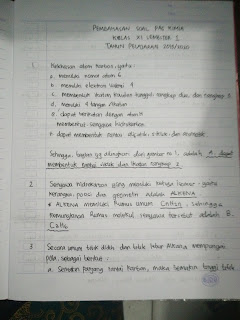 PEMBAHASAN SOAL PAS KIMIA
KELAS XI SEMESTER 1
TAHUN PELAJARAN 2019/2020
1. Kekhasan atom karbon, yaitu:
a. memiliki nomor atom 6
b. memiliki elektron valensi 4
c. membentuk ikatan kovalen tunggal, rangkap dua, dan rangkap 3
d. memiliki 4 tangan ikatan
e. dapat berikatan dengan atom H
membentuk senyawa hidrokarbon
f. dapat membentuk rantai alifatik, siklik, dan aromatik
Sehingga, bagian yg ditanyakan dari nomor 1, adalah A. dapat
membentuk rantai karbon dan ikatan rangkap 2
2. Senyawa hidrokarbon yang memiliki rumus umum yaitu
kerangka, pada dan geometri adalah ALKENA
• ALKENA memiliki rumus umum CnH2n, sehingga
kemungkinan rumus molekul senyawa tersebut adalah B.
3. Secara umum titik didih dan titik lebur Alkana mempunyai
pola, sebagai berikut:
a. Semakin panjang rantai karbon, maka semakin tinggi titik